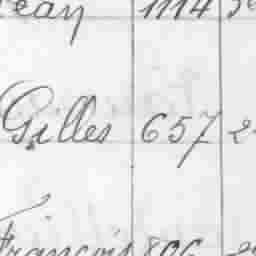 Jean 1114
Gilles 657 2
François 806